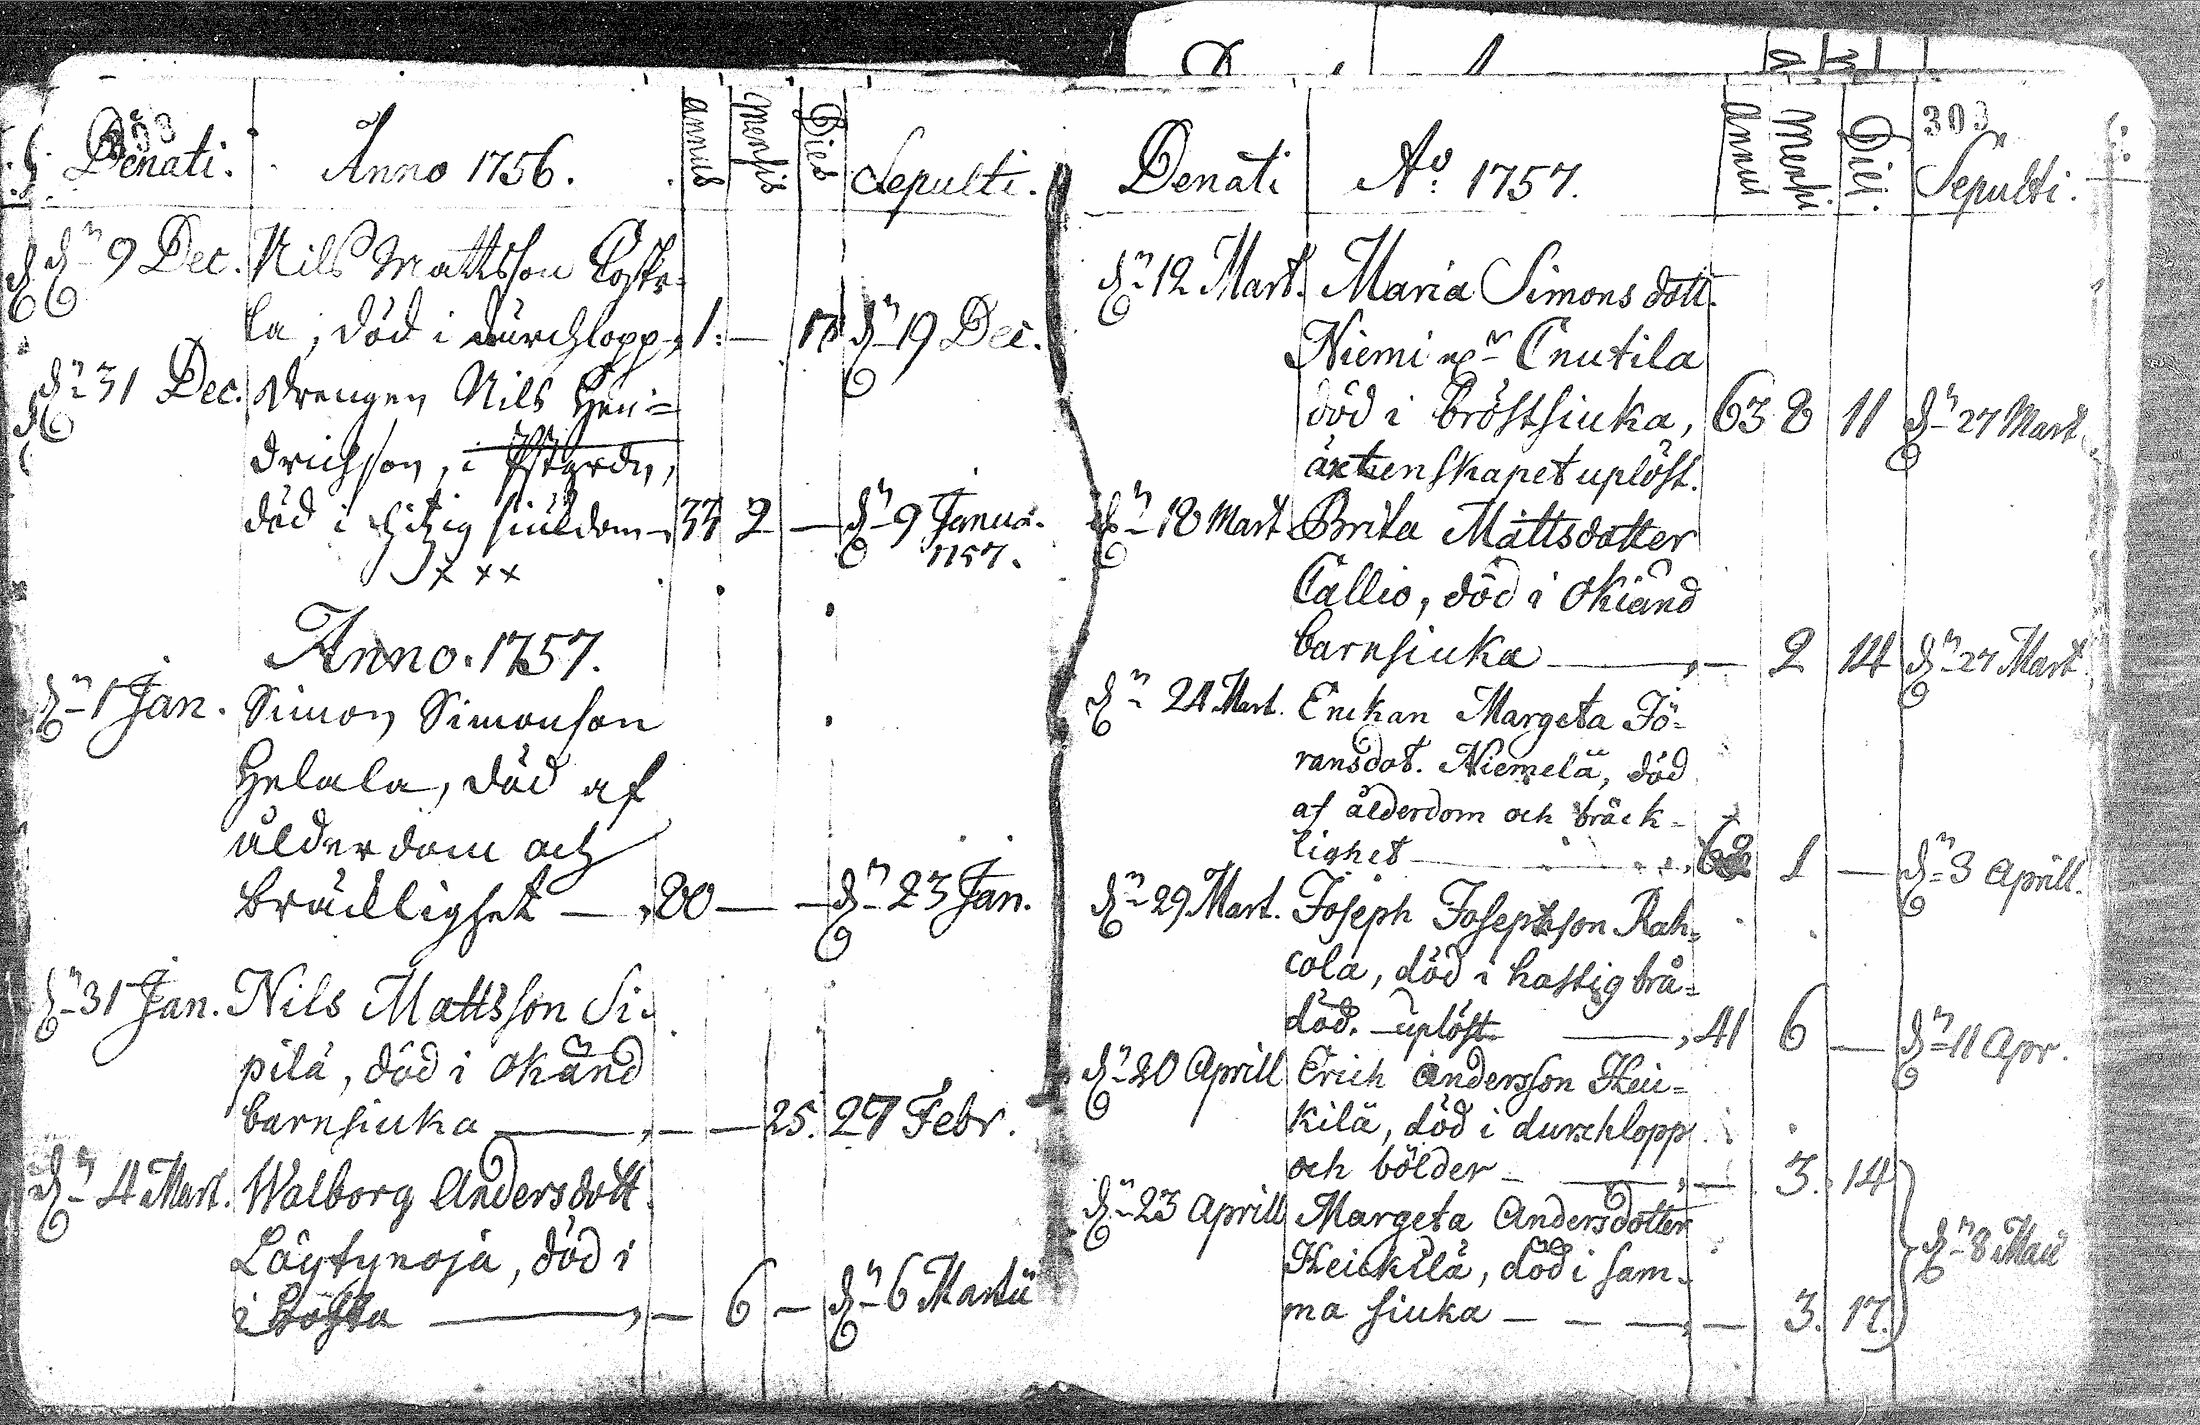 Denati. Anno 1756. annus Mensis Dies Sepulti.
dn 9 Dec. Nils Mattsson Coske-
la, död i durchlopp, 1. — 17 dn 19 Dec.
dn 31 Dec. Drengen Nils Hen-
drichsson, i
död i hitzig siukdom 33 2 — dn 9 Janua.
1757.
Anno. 1757.
dn 1 Jan. Simon Simonson
Helala, död af
ålderdom och
bräcklighet — 80 — — dn 23 Jan.
dn 31 Jan. Nils Mattsson Si-
pilä, död i okänd
barnsiuka — — — 25. 27 Febr.
dn 4 Mart. Walborg Andersdott.
Löytynoja, död i
i hosta — — 6 — dn 6 Martii
303
Denati Ao. 1757. Annus Mensis Dies. Sepulti.
dn 12 Mart. Maria Simons dott.
Niemi Cnutila
död i bröstsiuka, 63 8 11 dn 27 Mart.
äktenskapet uplöst.
dn 18 Mart Brita Mattsdotter
Callio, död i okiänd
barnsiuka — — 2 14 dn 27 Mart
dn 24 Mart. Enckan Margeta Jö-
ransdot. Niemelä, död
af ålderdom och bräck-
lighet — 1 — dn 3 Aprill.
dn 29 Mart. Joseph Josephsson Rah-
cola, död i hastig brå-
död. uplöst — 41 6 — dn 11 Apr.
dn 20 Aprill Erich Andersson Hei-
kilä, död i durchlopp
och bölder — — 3. 14
dn 23 Aprill Margeta Andersdotter
Heickilä, död i sam-
ma siuka — — — — 3. 17. dn 8 Maii